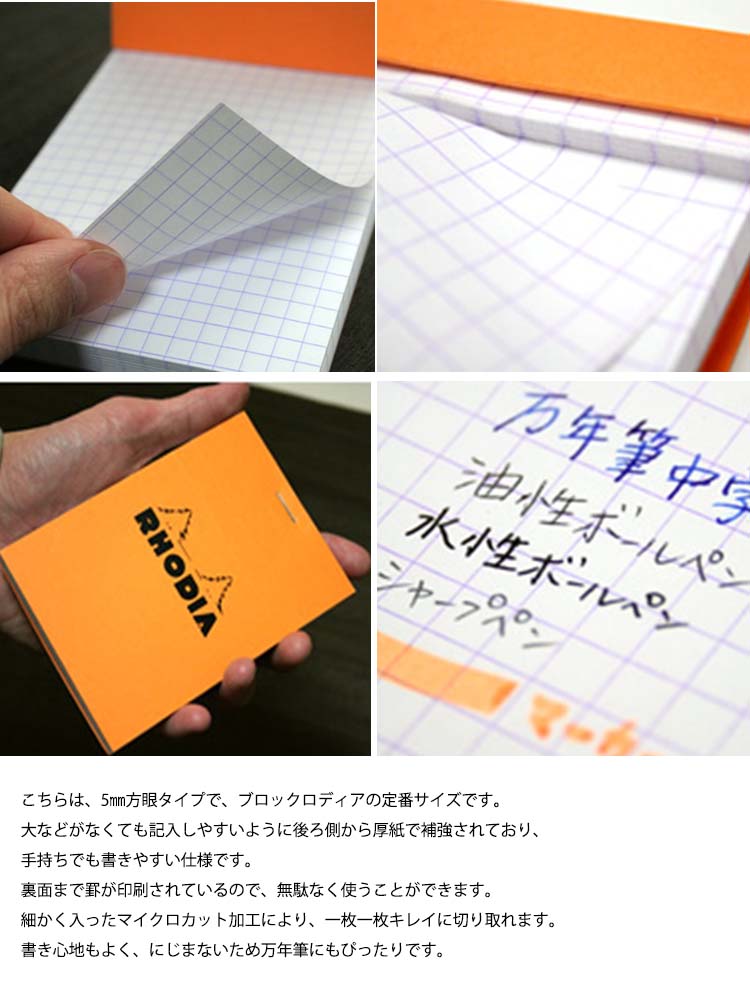 RHODIA
万年筆中字
油性ボールペン
水性ボールペン
シャープペン
こちらは、5㎜方眼タイプで、ブロックロディアの定番サイズです。
大などがなくても記入しやすいように後ろ側から厚紙で補強されており、
手持ちでも書きやすい仕様です。
裏面まで罫が印刷されているので、無駄なく使うことができます。
細かく入ったマイクロカット加工により、一枚一枚キレイに切り取れます。
書き心地もよく、にじまないため万年筆にもぴったりです。